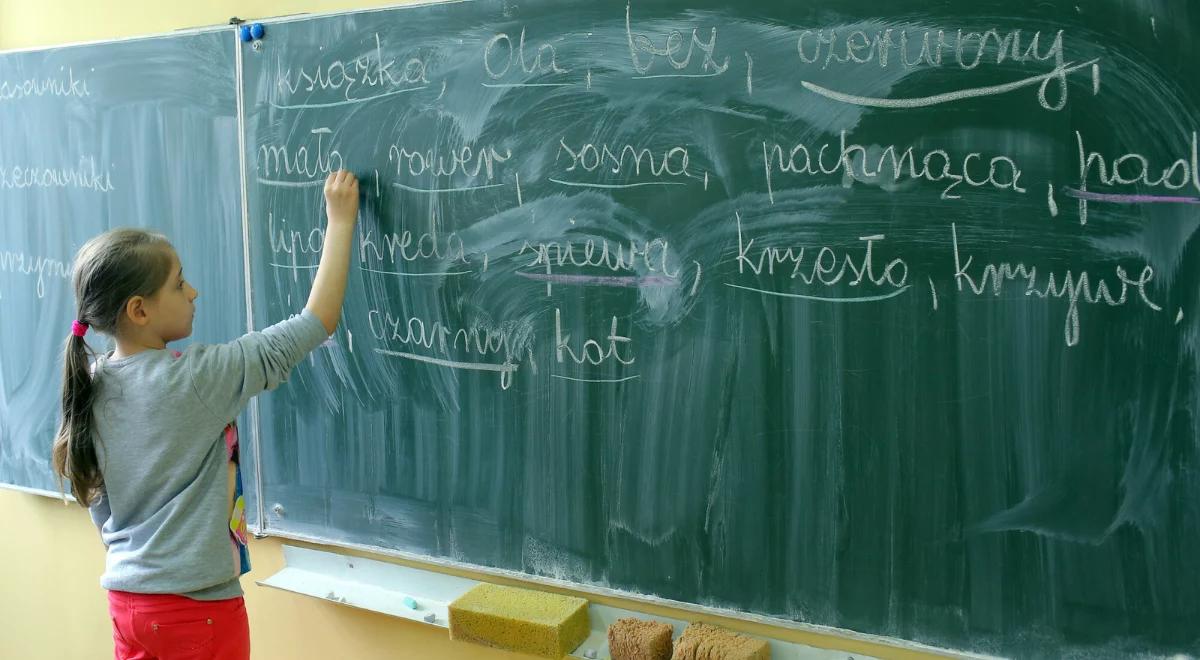 asowniki
zeczowniki
książka, Ola, bez, czerwony,
mało, rower, sosna, pachnąca, pad
lipa kreda, śpiewa, krzesło, krzywe,
, czarny, kot